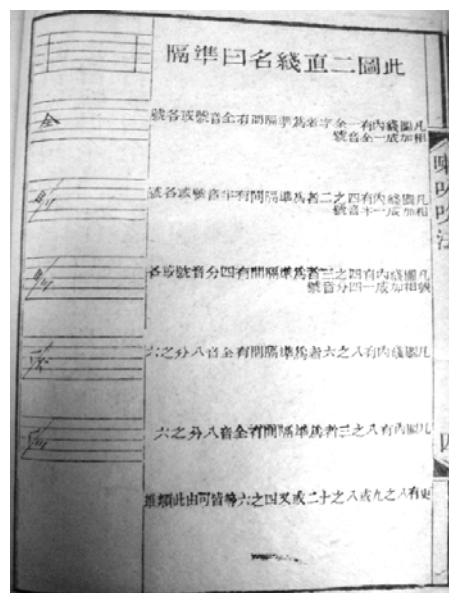 此圖二直綫名曰準隔
凡圖綫內有一全字者爲準隔間有全音號或各號
相加成一全音號
凡圖綫內有四之二者爲準隔間有半音號或各號
相加成一半音號
凡圖綫內有四之三者爲準隔間有四分音號或各
號相加成一四分音號
凡圖綫內有八之六者爲準隔間有全音八分之六
凡圖內有八之三者爲準隔間有全音八分之六
更有八之九或八之十二又或四之六等皆可由此類推
吹法
全